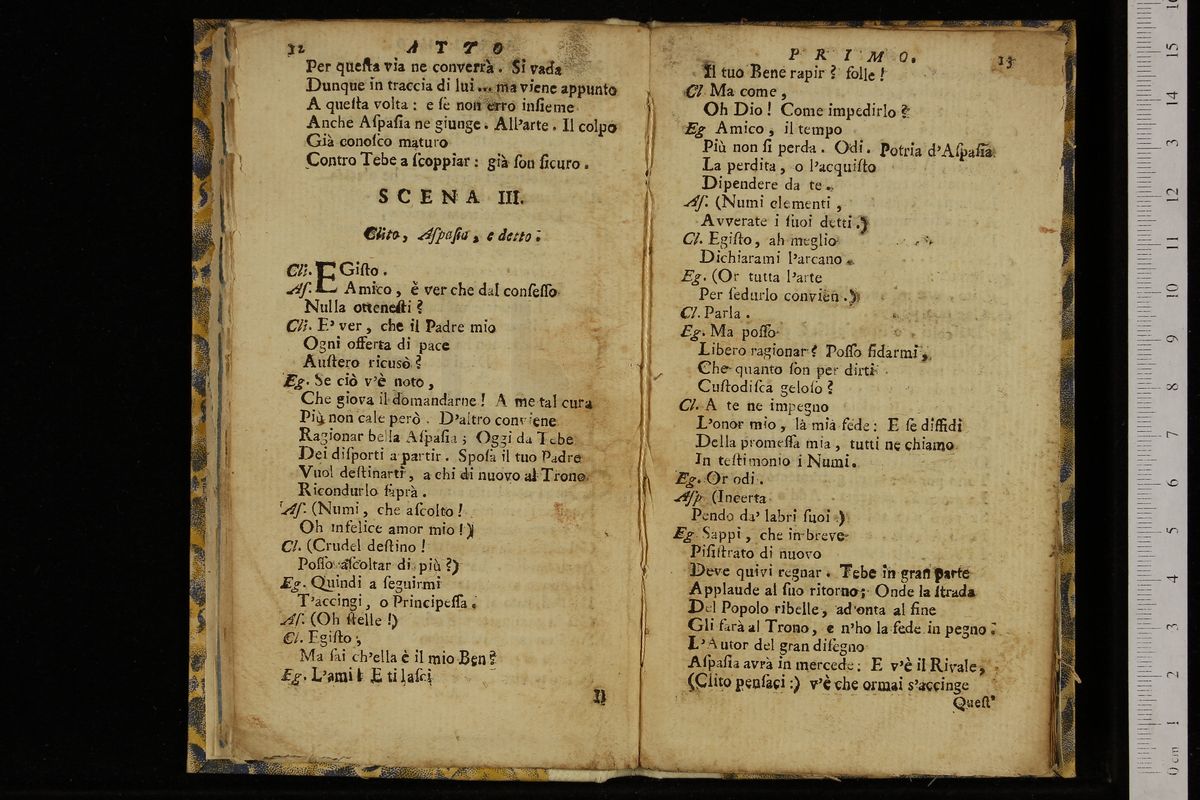 12 ATTO
Per queſta via ne converrà. Si vada
Dunque in traccia di lui... ma viene appunto
A queſta volta: e ſe non erro inſieme
Anche Aſpaſia ne giunge. All'arte. Il colpo
Già conoſco maturo
Contro Tebe a ſcoppiar: già ſon ſicuro.
SCENA III.
Clito, Aſpaſia, e detto.
Cli. EGiſto.
Aſ. Amico, è ver che dal conſeſſo
Nulla otteneſti?
Cli. E' ver, che il Padre mio
Ogni offerta di pace
Auſtero ricusò?
Eg. Se ciò v'è noto,
Che giova il domandarne! A me tal cura
Più non cale però. D'altro conviene
Ragionar bella Aſpaſia; Oggi da Tebe
Dei diſporti a partir. Spoſa il tuo Padre
Vuol deſtinarti, a chi di nuovo al Trono
Ricondurlo ſaprà.
Aſ. (Numi, che aſcolto!
Oh infelice amor mio!)
Cl. (Crudel deſtino!
Poſſo aſcoltar di più?)
Eg. Quindi a ſeguirmi
T'accingi, o Principeſſa.
Aſ. (Oh ſtelle!)
Cl. Egiſto,
Ma ſai ch'ella è il mio Ben?
Eg. L'ami! E ti laſci
Il
PRIMO. 13
Il tuo Bene rapir? folle!
Cl. Ma come,
Oh Dio! Come impedirlo?
Eg Amico, il tempo
Più non ſi perda. Odi. Potria d'Aſpaſia
La perdita, o l'acquiſto
Dipendere da te.
Aſ. (Numi clementi,
Avverate i ſuoi detti.)
Cl. Egiſto, ah meglio
Dichiarami l'arcano.
Eg. (Or tutta l'arte
Per ſedurlo convien.)
Cl. Parla.
Eg. Ma poſſo
Libero ragionar? Poſſo fidarmi,
Che quanto ſon per dirti
Cuſtodiſca geloſo?
Cl. A te ne impegno
L'onor mio, la mia fede: E ſe diffidi
Della promeſſa mia, tutti ne chiamo
In teſtimonio i Numi.
Eg. Or odi.
Aſp (Incerta
Pendo da' labri ſuoi.)
Eg Sappi, che in breve
Piſiſtrato di nuovo
Deve quivi regnar. Tebe in gran parte
Applaude al ſuo ritorno; Onde la ſtrada
Del Popolo ribelle, ad onta al fine
Gli farà al Trono, e n'ho la fede in pegno.
L'Autor del gran diſegno
Aſpaſia avrà in mercede: E v'è il Rivale,
(Clito penſaci:) v'è che ormai s'accinge
Queſt'